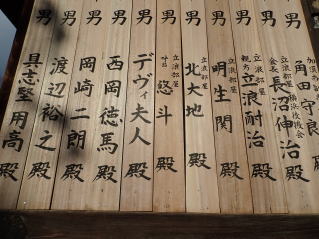 男 角田守良 殿
男 立浪部屋 横浜後援会 会長 長沼伸治 殿
男 立浪部屋 親方 立浪耐治 殿
男 立浪部屋 明生関 殿
男 立浪部屋 北大地 殿
男 立浪部屋 呼出 悠斗 殿
男 デヴィ夫人 殿
男 西岡徳馬 殿
男 岡崎二朗 殿
男 渡辺裕之 殿
具志堅用高 殿